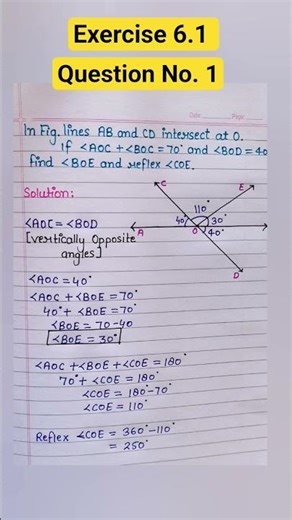 Exercise 6.1
Question No. 1
Date Page
In Fig. lines AB and CD intersect at O.
If ∠AOC + ∠BOC = 70° and ∠BOD = 40
find ∠BOE and reflex ∠COE.
Solution:
C
E
110°
40°
30°
∠AOC = ∠BOD
A
O
40°
[vertically opposite
angles]
D
∠AOC = 40°
∠AOC + ∠BOE = 70°
40° + ∠BOE = 70°
∠BOE = 70-40
∠BOE = 30°
∠AOC + ∠BOE + ∠COE = 180°
70° + ∠COE = 180°
∠COE = 180°-70°
∠COE = 110°
Reflex ∠COE = 360°-110°
= 250°